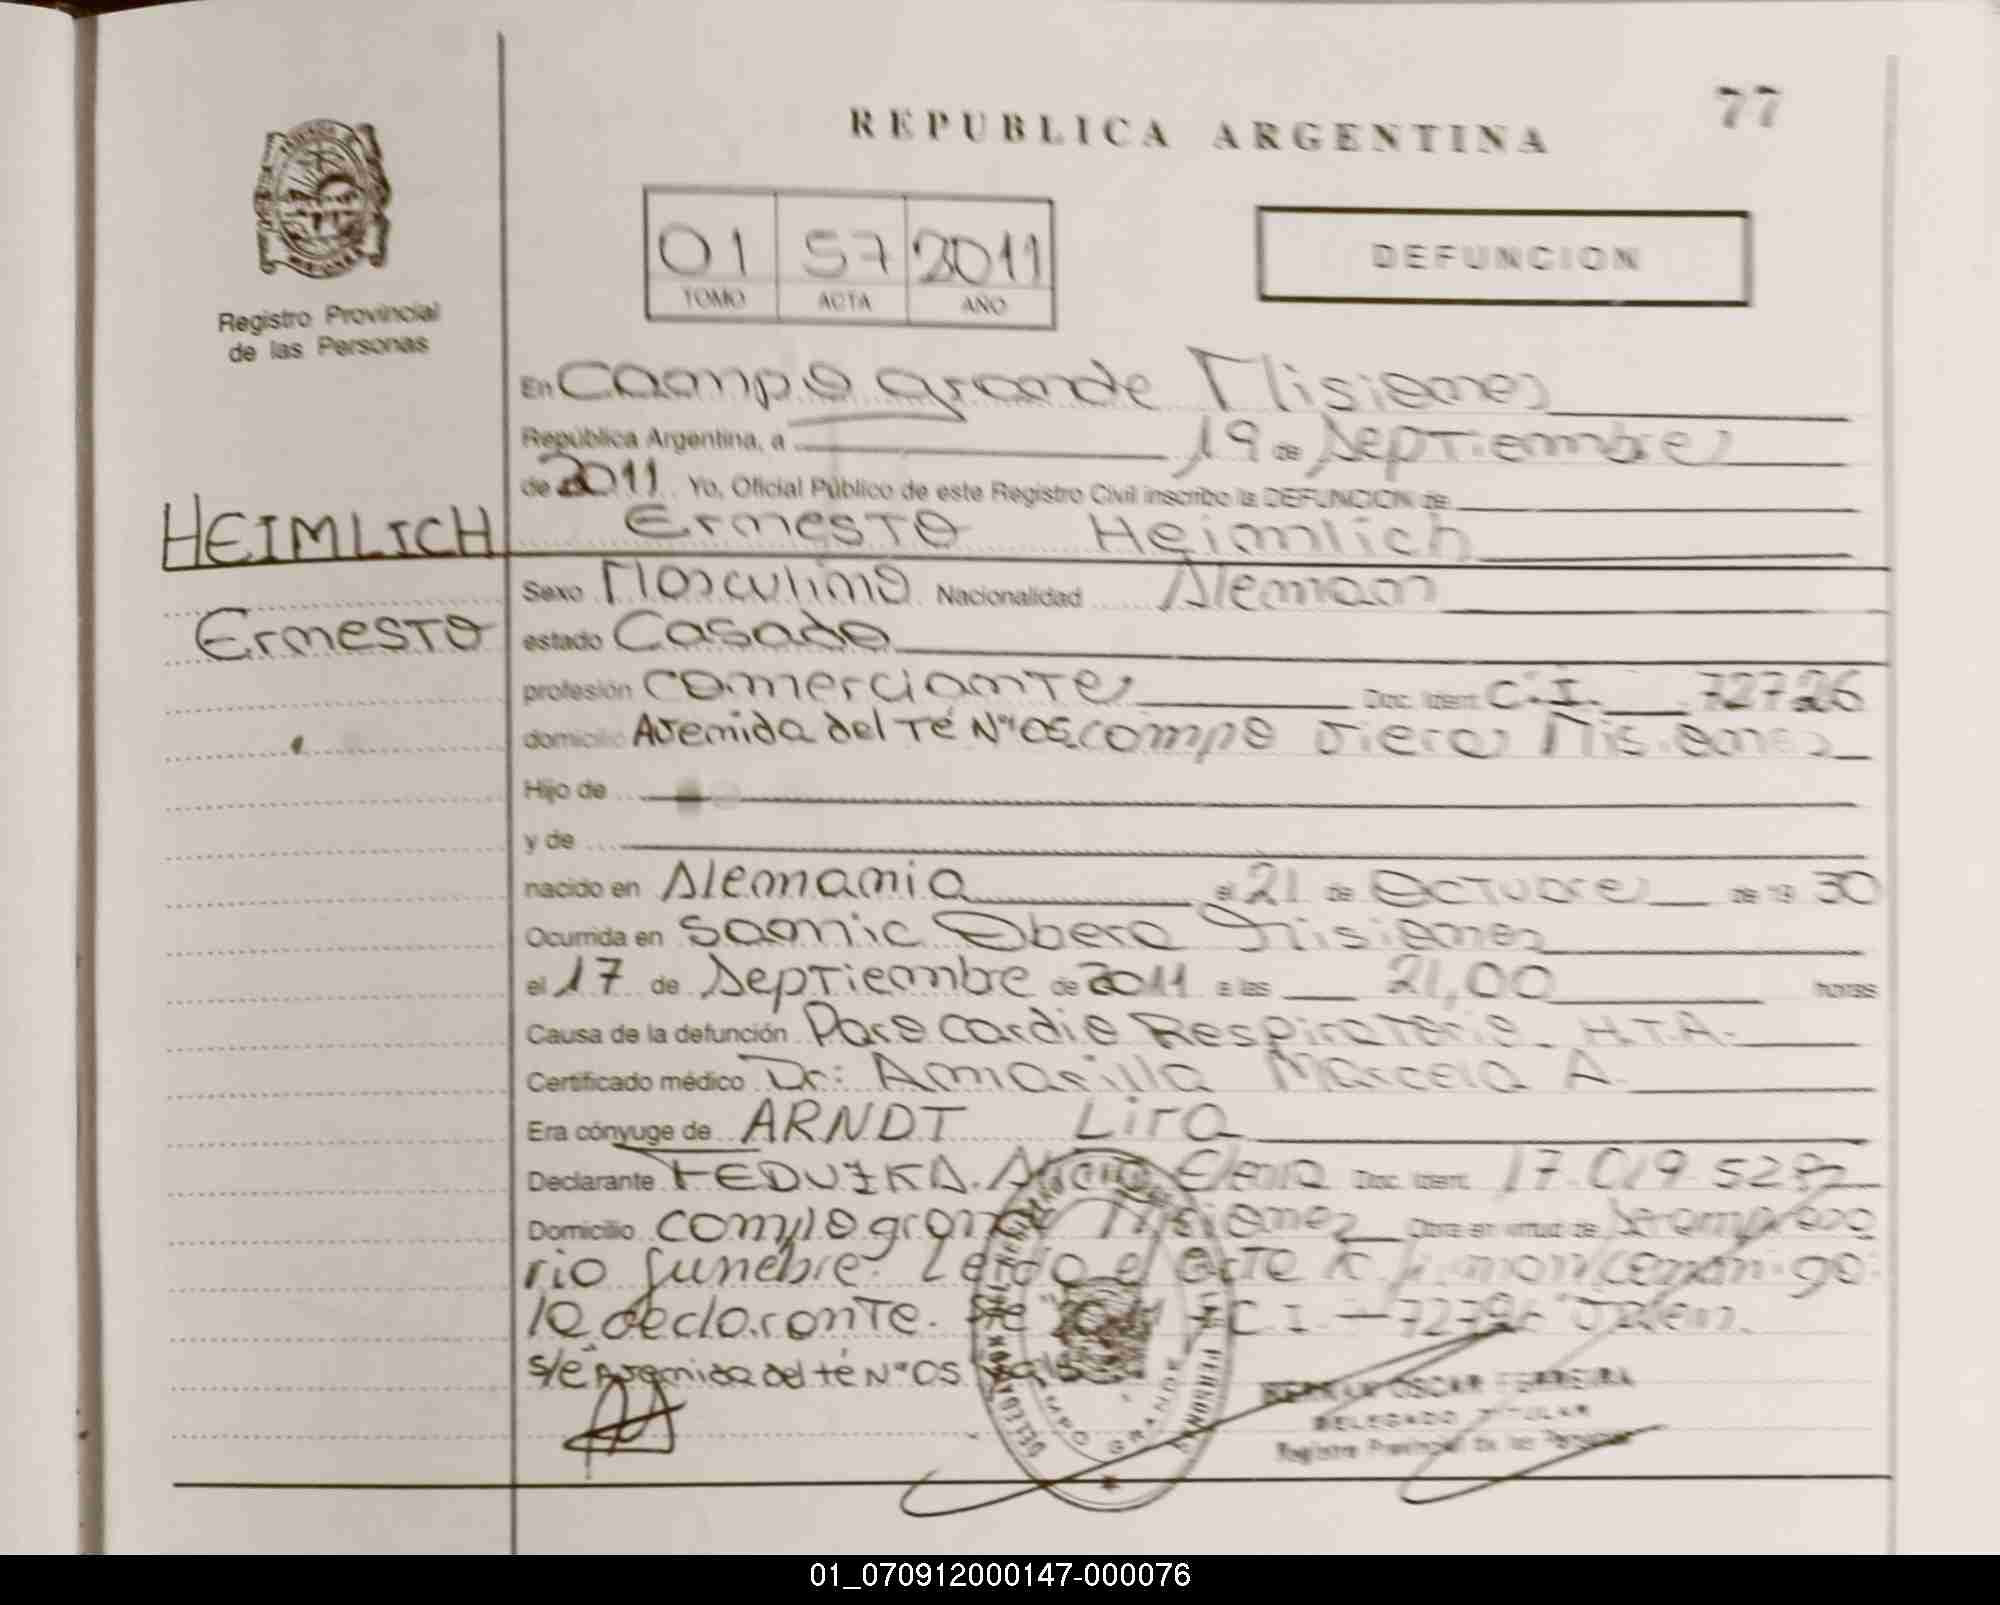 77
REPUBLICA ARGENTINA
01 57 2011
TOMO ACTA AÑO
DEFUNCION
Registro Provincial
de las Personas
HEIMLICH
Ernesto
En Campo grande Misiones
República Argentina, a 19 de Septiembre
de 2011 Yo, Oficial Público de este Registro Civil inscribo la DEFUNCION de
Ernesto Heimlich
Sexo Masculino Nacionalidad Aleman
estado Casado
profesión comerciante Doc. Ident. C.I. 72726
domicilio Avenida del Té Nº 05 campo viera Misiones
Hijo de
y de
nacido en Alemania el 21 de Octubre de 19 30
Ocurrida en Samic Obera Misiones
el 17 de Septiembre de 2011 a las 21,00 horas
Causa de la defunción Paro Cardio Respiratorio H.T.A.
Certificado médico Dr: Amarilla Marcela A.
Era cónyuge de ARNDT Lira
Declarante Elena Doc. Ident. 17.019.528
Domicilio campo grande Misiones Obra en virtud de
rio funebre. Leido el acta
la declarante. C.I.
s/e Avenida del té Nº 05
OSCAR FERREIRA
DELEGADO TITULAR
Registro Provincial De las Personas
01_070912000147-000076